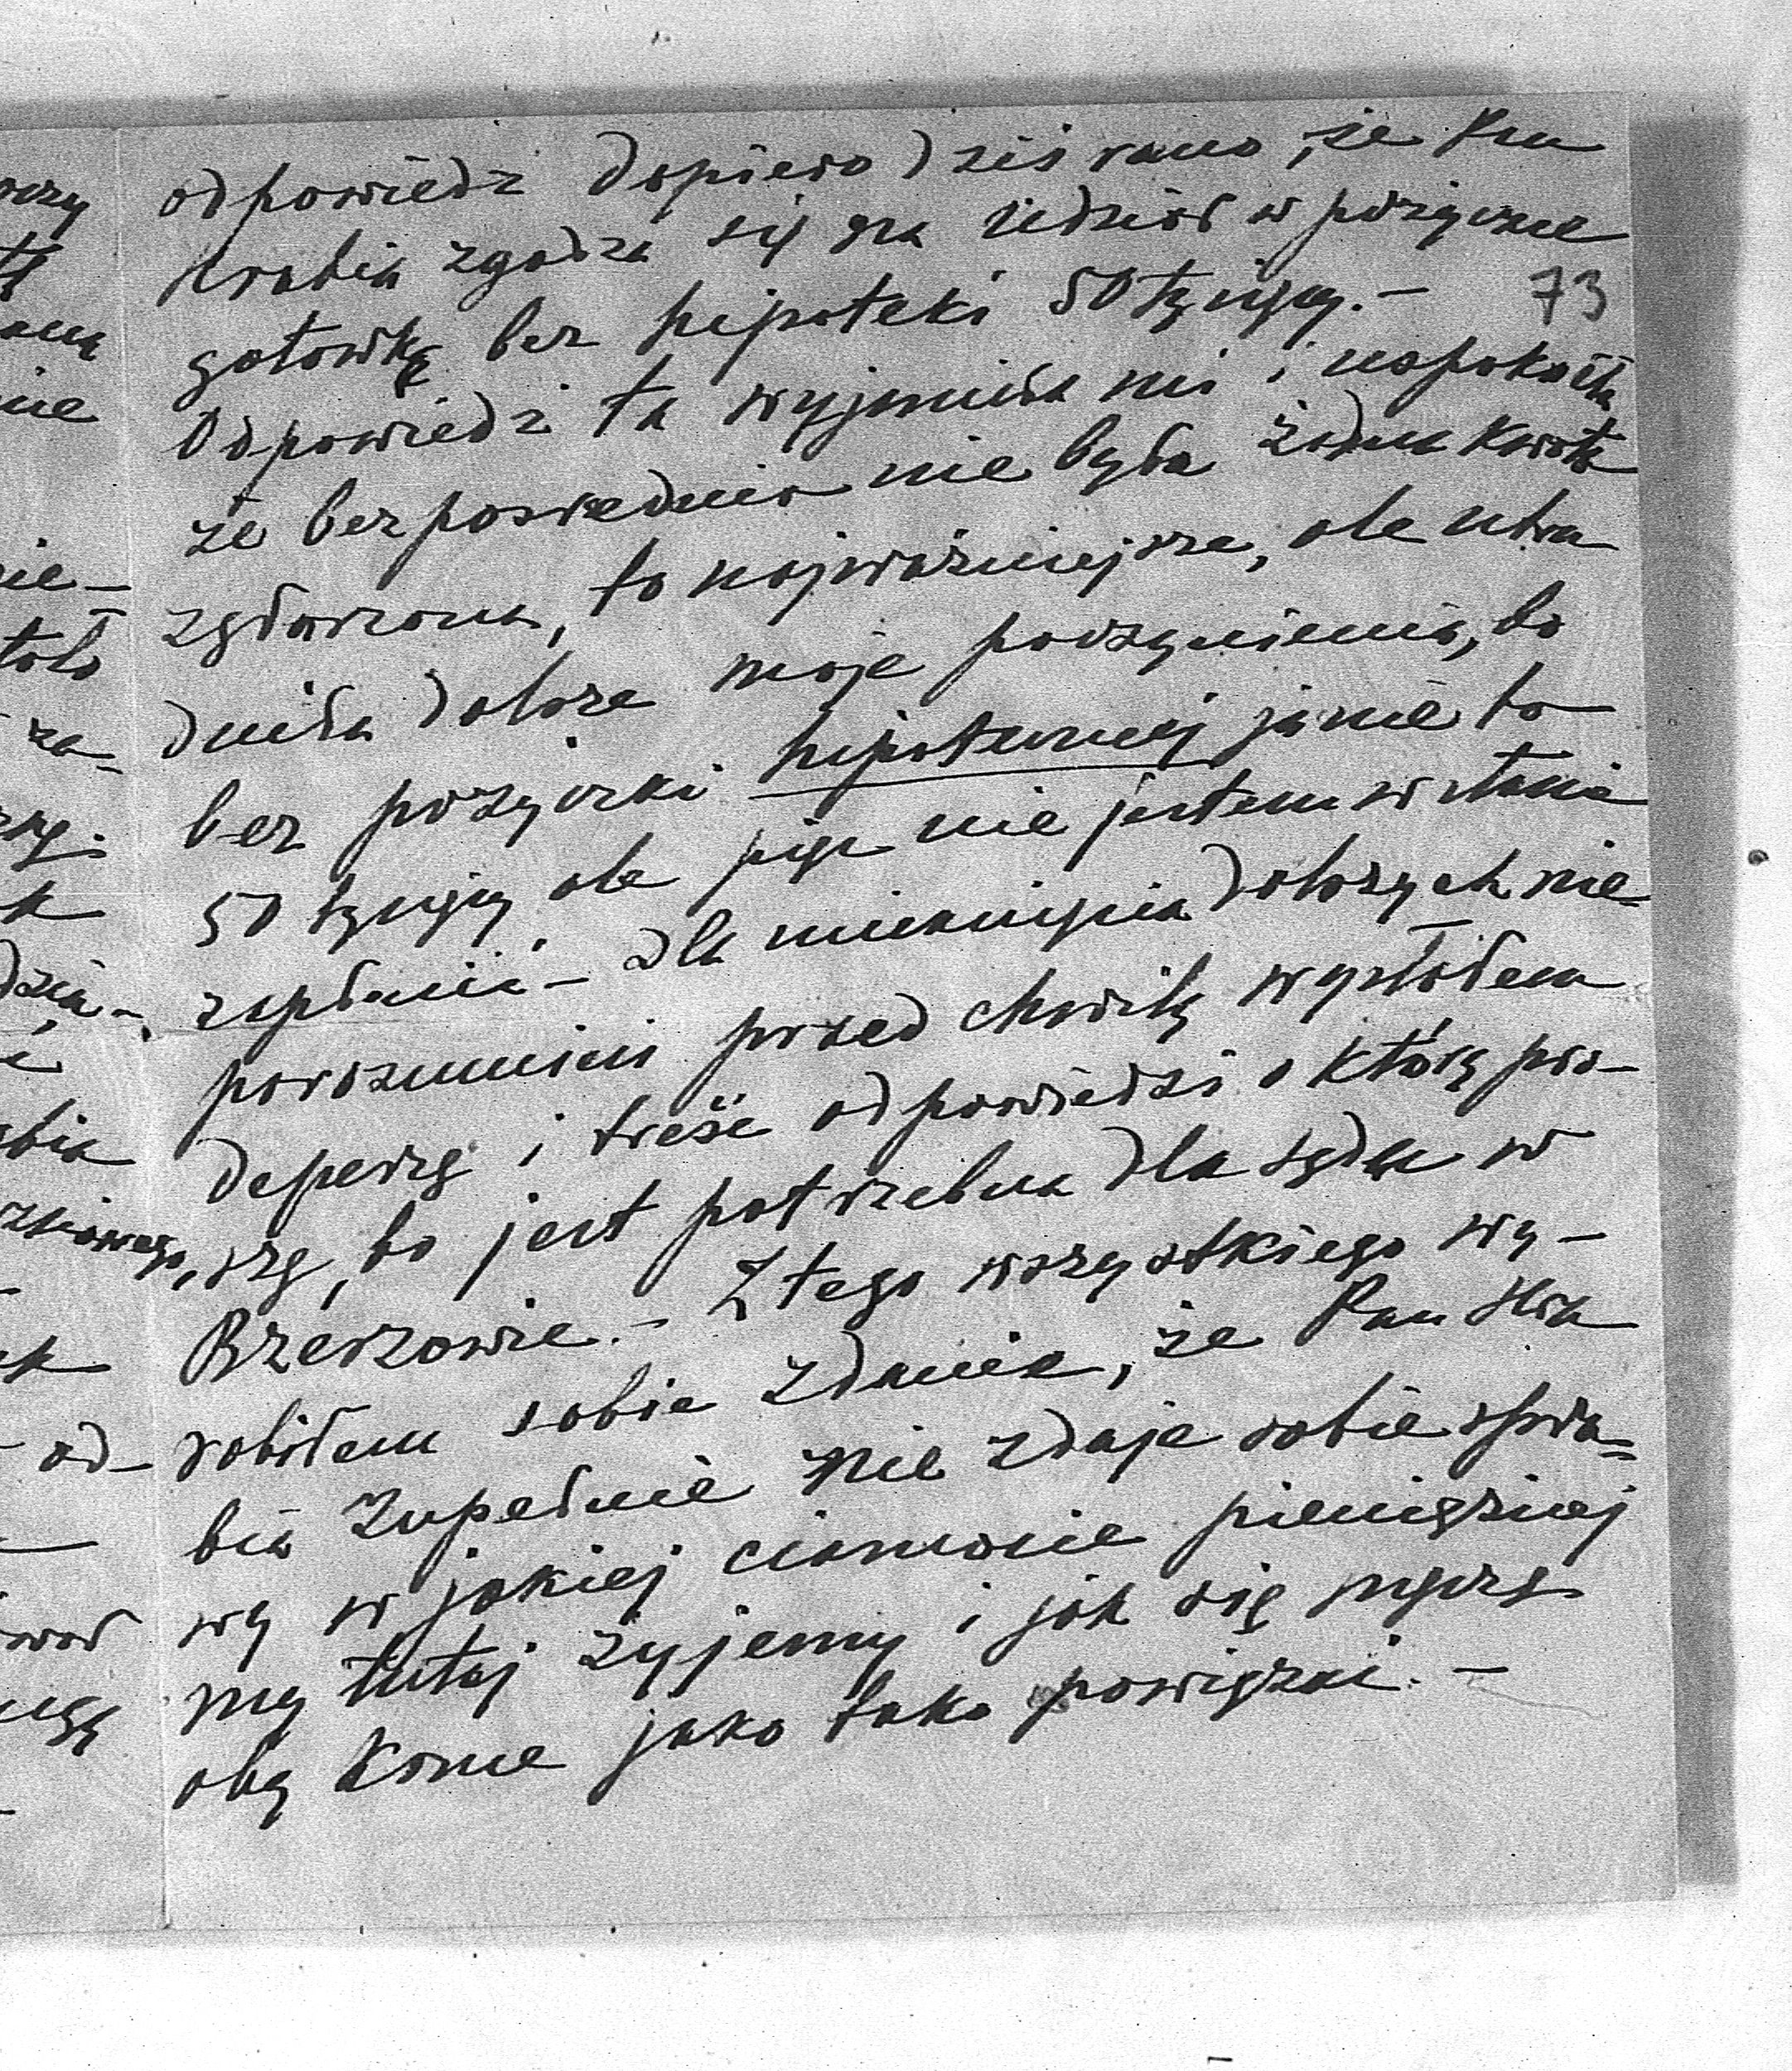 odpowiedź dopiero dziś rano, że Pan
hrabia zgadza się na udział w pożyczce
gotowką bez hipoteki 50 tysięcy. –
73
Odpowiedź ta wyjaśniła mi i uspokoiła
że bezpośrednio nie była żadna kwota
zgłoszona, to najważniejsze, ale utru
dniła dobrze moje poczynienia, bo
bez pożyczki hipotecznej ja nie to
50 tysięcy ale nie jestem w stanie
zapłacić – dla uniknięcia dalszych nie
porozumień przed chwilą wysłałem
depeszę i treść odpowiedzi o którą pro–
szę, bo jest potrzebna dla sądu w
Brzezowie. – Z tego wszystkiego wy–
robiłem sobie zdanie, że Pan Hra
bia zupełnie nie zdaje sobie spra=
wy w jakiej ciasnocie pieniężnej
my tutaj żyjemy i jak się męczę
aby końce jako tako powiązać. –
rzy
nie
nie –
za–
k
dzia–
abia
od–